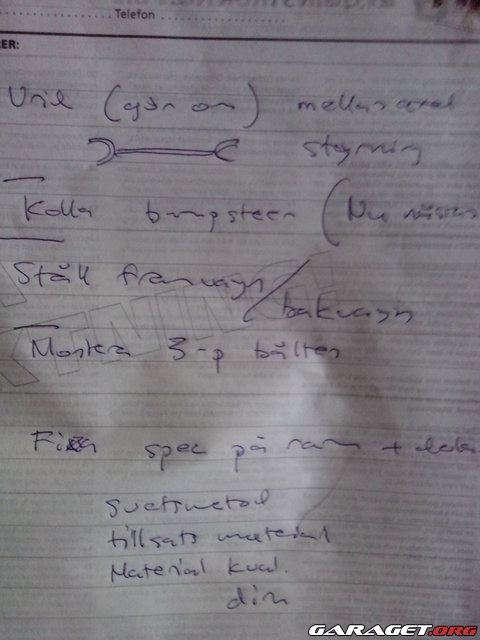 Telefon
ER:
Vrid (gör om) mellanaxel
styrning
Kolla bumpsteer (Nu nästan
Ställ framvagn / bakvagn
Montera 3-p bälten
Fixa spec på ram + delar
svetsmetod
tillsats material
Material kval.
dim
GARAGET.ORG